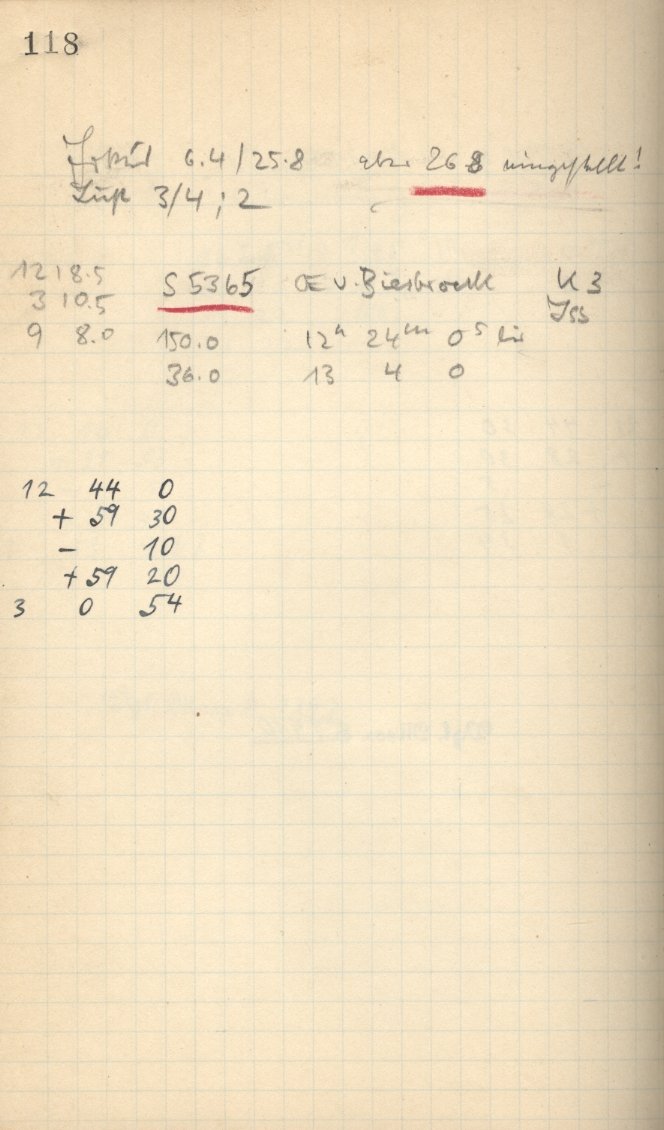 118
Fokus 6.4 / 25.8 aber 26.8 eingestellt!
Luft 3/4 ; 2
12 18.5 S 5365 OE v. Biesbroeck K 3
3 10.5
9 8.0 150.0 12h 24m 0s bis
36.0 13 4 0
12 44 0
+ 59 30
- 10
+ 59 20
3 0 54